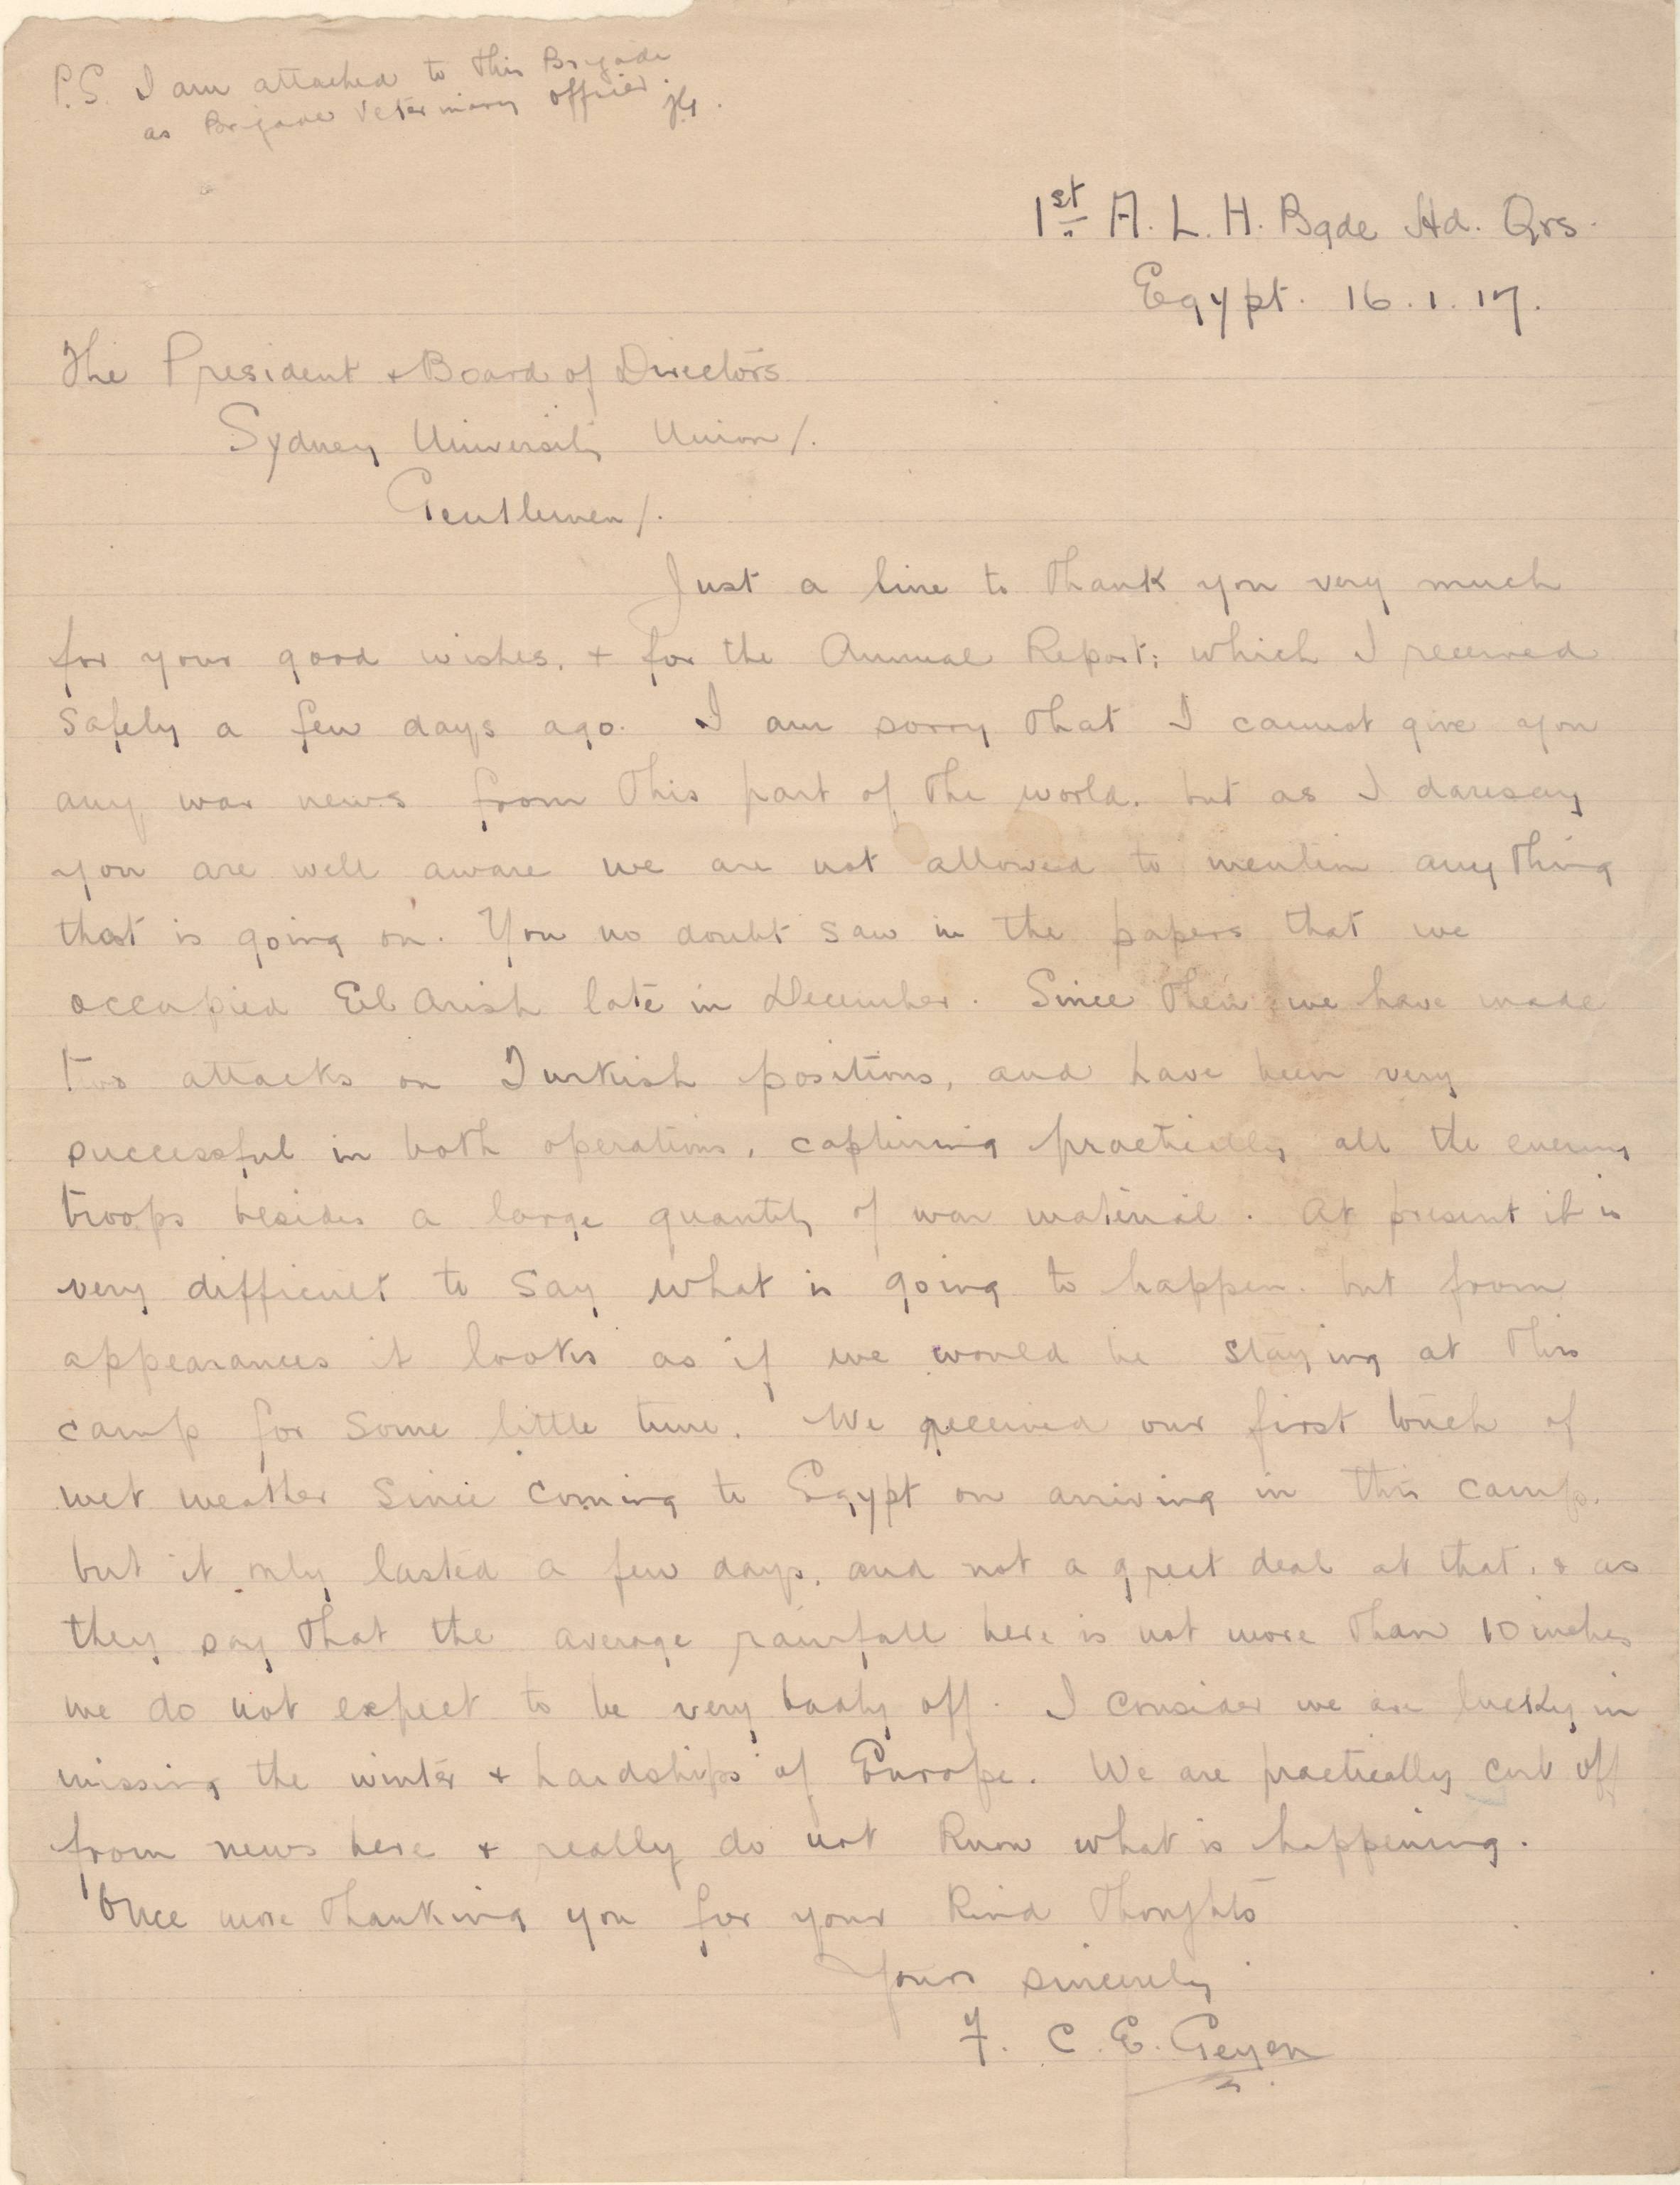 P.S. I am attached to this Brigade
as Brigade Veterinary Officer
1st A. L. H. Bgde Hd. Qrs.
Egypt. 16.1.17.
The President & Board of Directors
Sydney University Union/.
Gentlemen/.
Just a line to thank you very much
for your good wishes, & for the Annual Report; which I received
safely a few days ago. I am sorry that I cannot give you
any war news from this part of the world. but as I daresay
you are well aware we are not allowed to mention anything
that is going on. You no doubt saw in the papers that we
occupied El Arish late in December. Since then we have made
two attacks on Turkish positions, and have been very
successful in both operations, capturing practically all the enemy
troops besides a large quantity of war material. At present it is
very difficult to say what is going to happen. but from
appearances it looks as if we would be staying at this
camp for some little time. We received our first touch of
wet weather since coming to Egypt on arriving in this camp.
but it only lasted a few days. and not a great deal at that. & as
they say that the average rainfall here is not more than 10 inches
we do not expect to be very badly off. I consider we are lucky in
missing the winter & hardships of Europe. We are practically cut off
from news here & really do not know what is happening.
Once more thanking you for your kind thoughts
Yours sincerely
F. C. E. Geyen